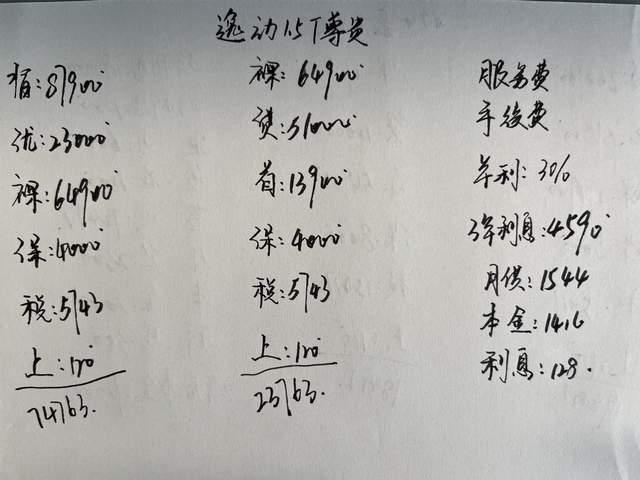 逸动1.5T尊贵
指:87900
优:23000
裸:64900
保:4000
税:5743
上:120
74763.
裸:64900
贷:51000
首:13900
保:4000
税:5743
上:120
23763.
服务费
手续费
年利:3%
3年利息:4590
月供:1544
本金:1416
利息:128.